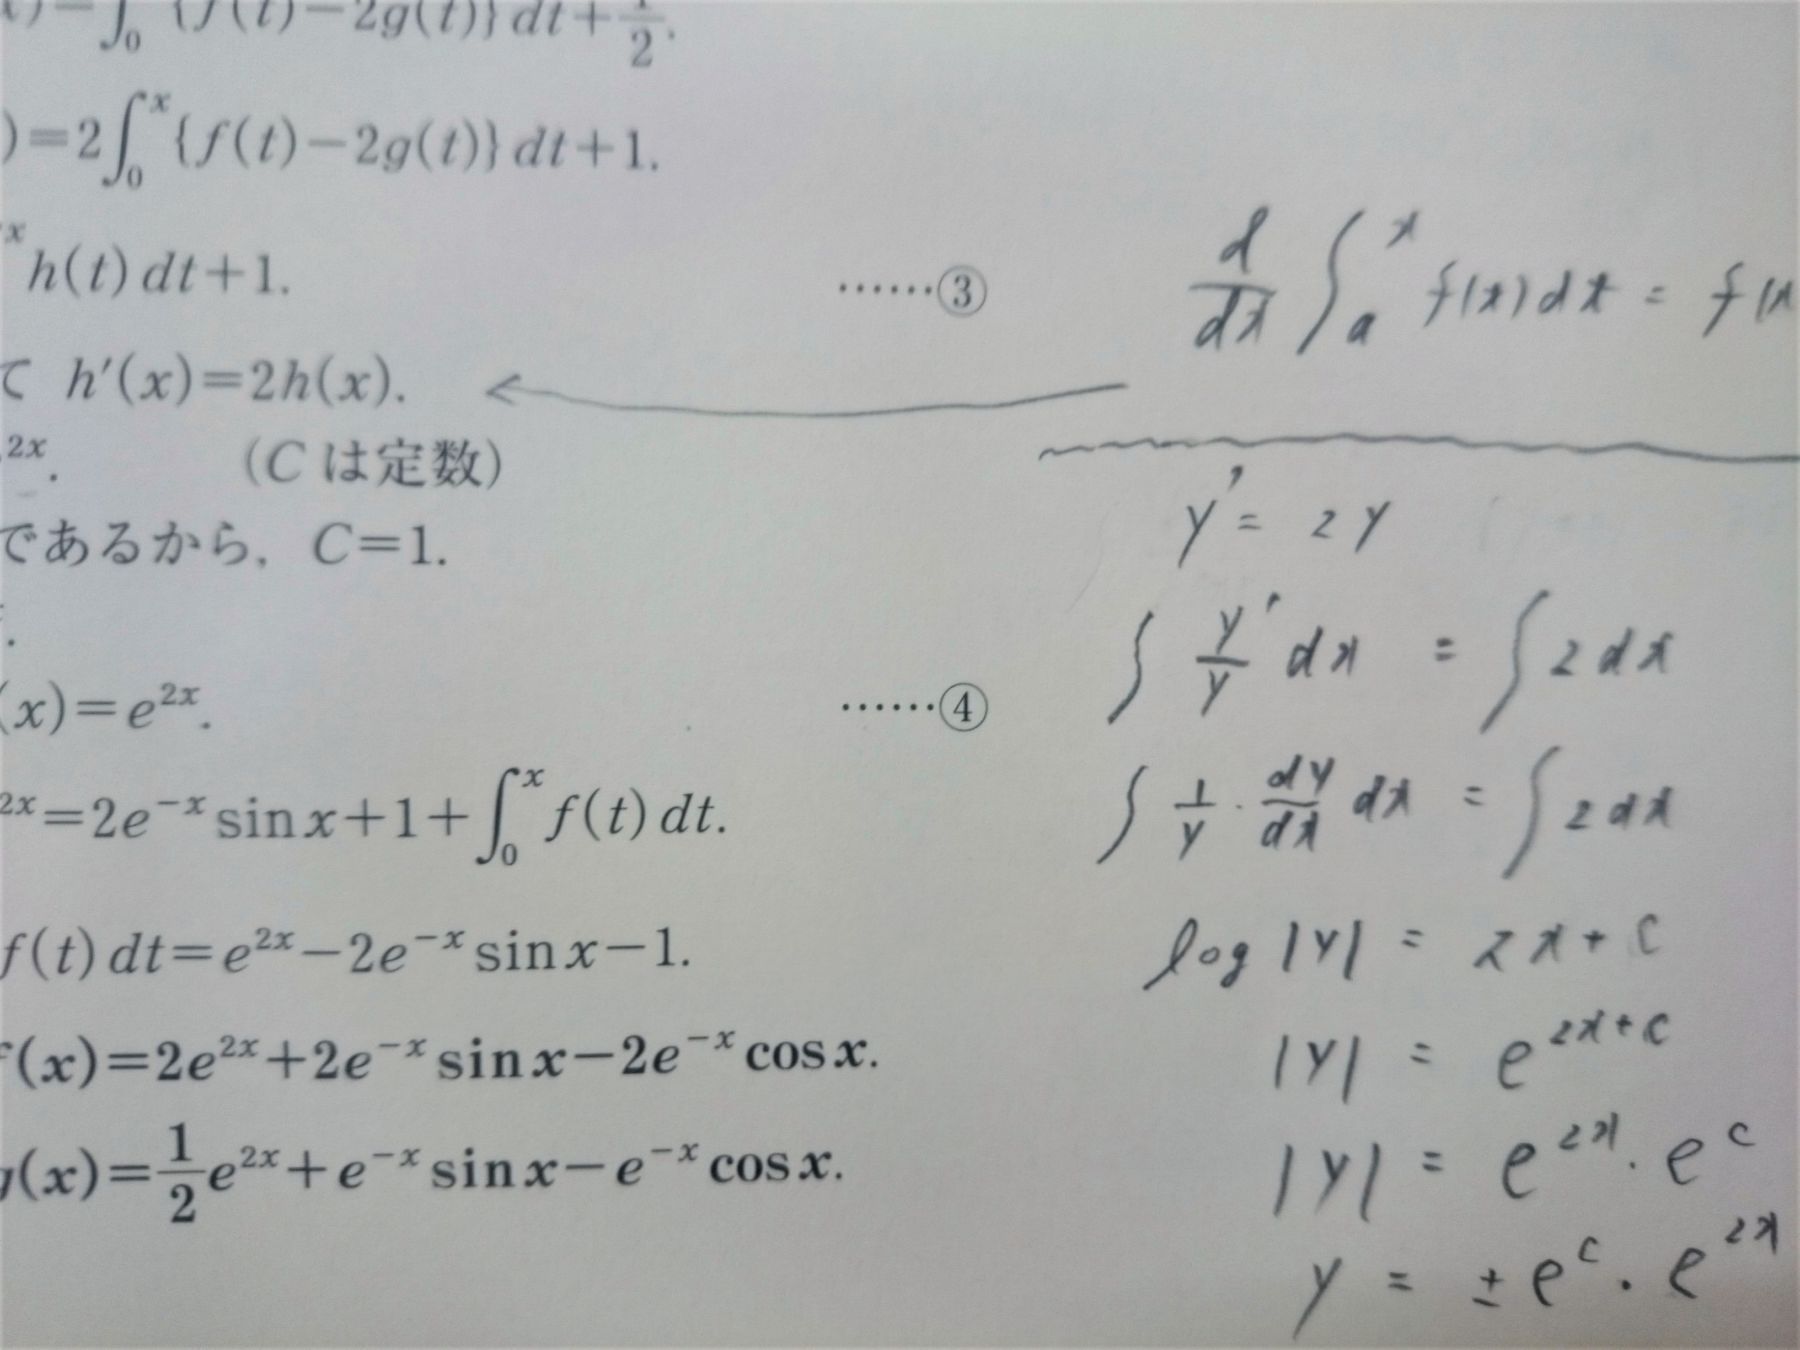 )=∫₀ {f(t)−2g(t)}dt+1/2.
)=2∫₀ˣ{f(t)−2g(t)}dt+1.
ˣh(t)dt+1. ……③
て h′(x)=2h(x).
²ˣ. (C は定数)
であるから, C=1.
.
(x)=e²ˣ. ……④
²ˣ=2e⁻ˣsinx+1+∫₀ˣf(t)dt.
f(t)dt=e²ˣ−2e⁻ˣsinx−1.
f(x)=2e²ˣ+2e⁻ˣsinx−2e⁻ˣcosx.
g(x)=1/2e²ˣ+e⁻ˣsinx−e⁻ˣcosx.
d/dx ∫ₐˣ f(x)dt = f(x
y′ = 2y
∫ y′/y dx = ∫ 2dx
∫ 1/y · dy/dx dx = ∫ 2dx
log |y| = 2x + C
|y| = e^(2x+C)
|y| = e²ˣ · e^C
y = ±e^C · e²ˣ